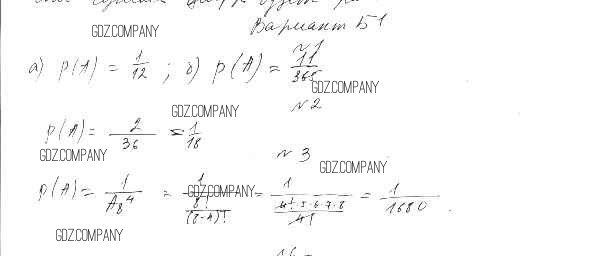 GDZ.COMPANY
Вариант Б1
№1
а) P(A) = 1/12 ; б) P(A) = 11/365
GDZ.COMPANY
№2
GDZ.COMPANY
P(A) = 2/36 = 1/18
GDZ.COMPANY
№3
GDZ.COMPANY
P(A) = 1/A₈⁴ = 1/(8!/(8-4)!) = 1/(4!·5·6·7·8/4!) = 1/1680.
GDZ.COMPANY
GDZ.COMPANY